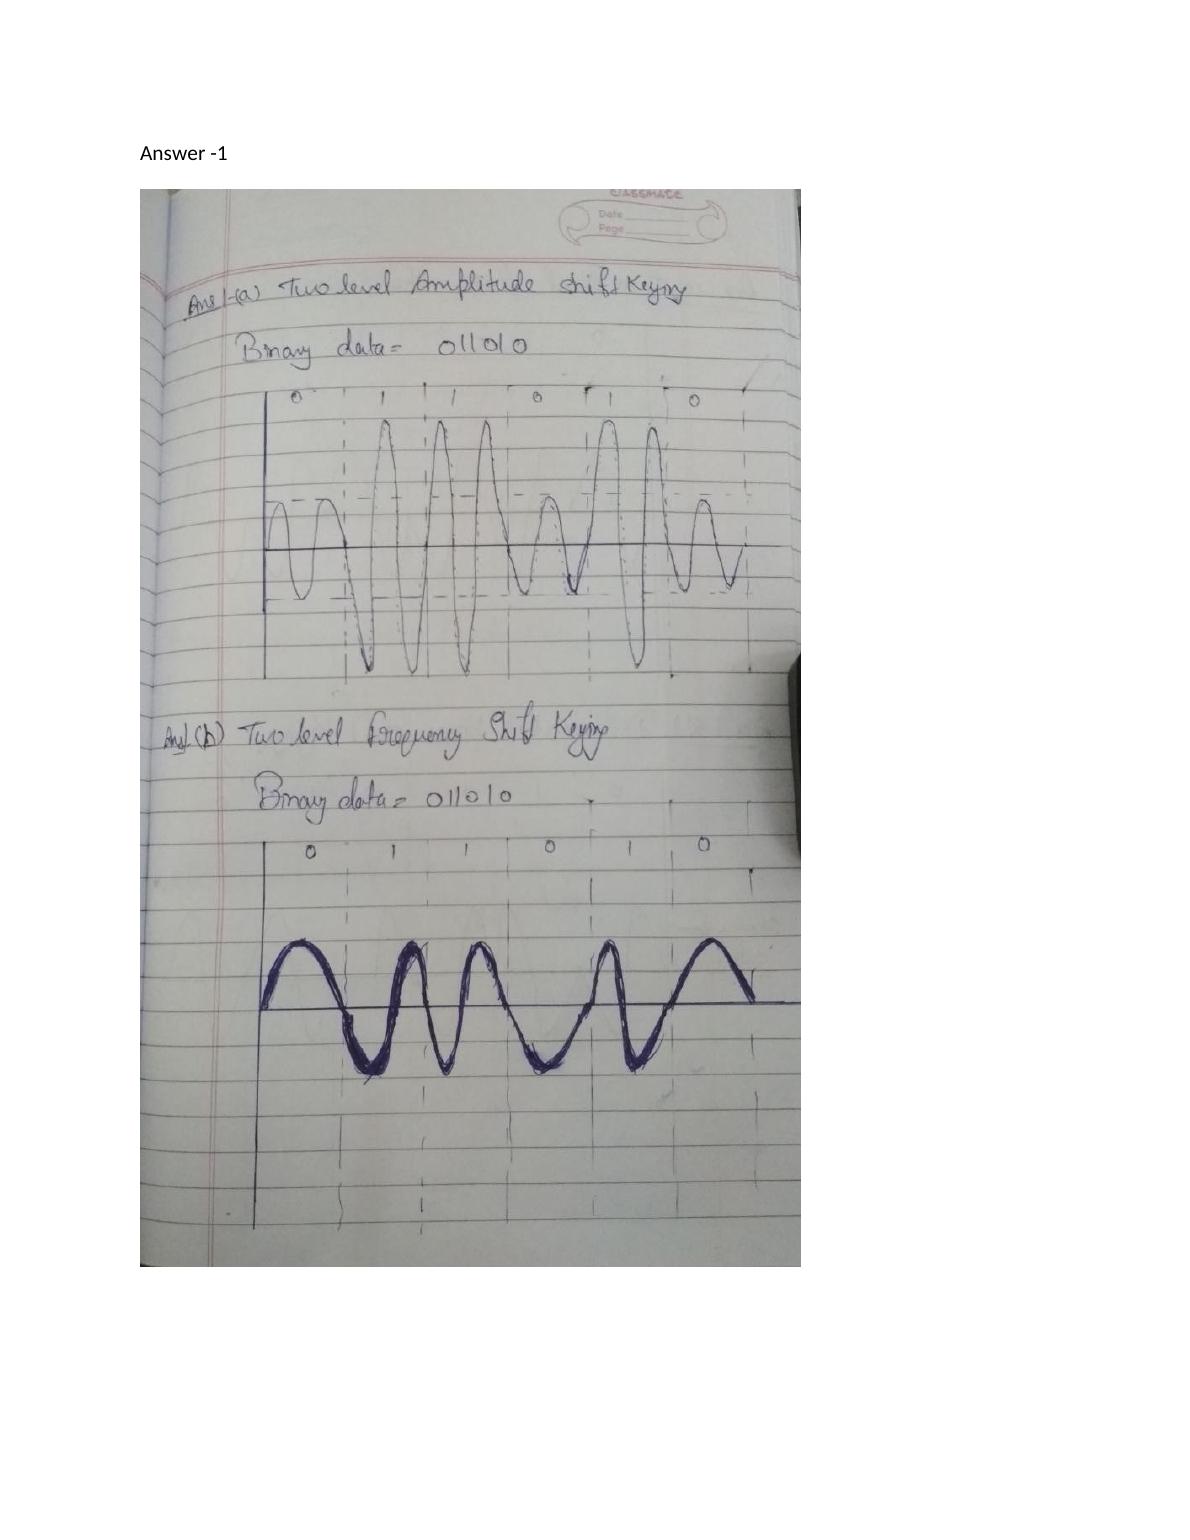 Answer -1
classmate
Date
Page
Ans 1-(a) Two level Amplitude Shift Keying
Binary data = 011010
0 1 1 0 1 0
Ans1.(b) Two level frequency Shift Keying
Binary data = 011010
0 1 1 0 1 0